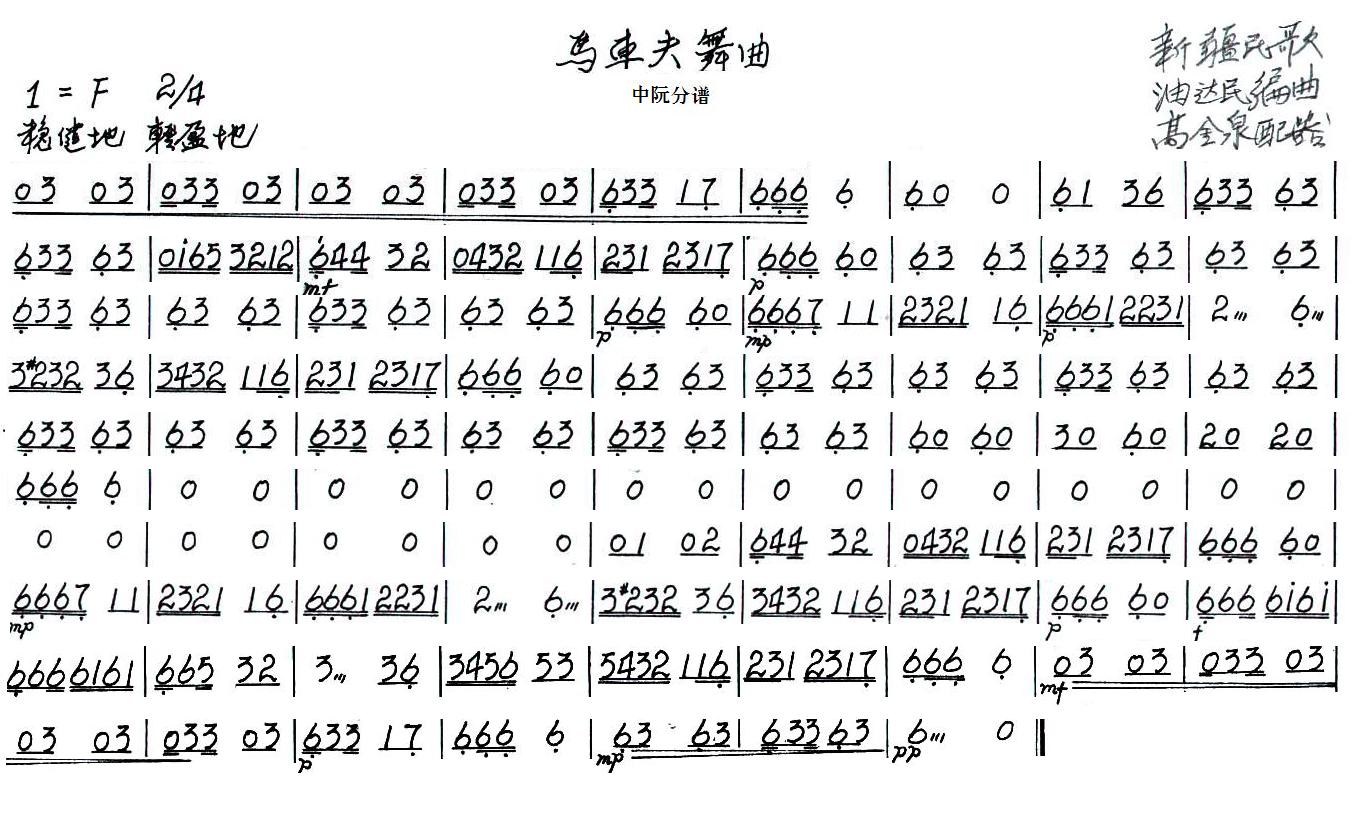 馬車夫舞曲
中阮分谱
新疆民歌
油达民编曲
高金泉配器
1 = F 2/4
稳健地 轻盈地
03 03 | 033 03 | 03 03 | 033 03 | 633 17 | 666 6 | 60 0 | 61 36 | 633 63 |
633 63 | 0i65 3212 | 644 32 | 0432 116 | 231 2317 | 666 60 | 63 63 | 633 63 | 63 63 |
mf p
633 63 | 63 63 | 633 63 | 63 63 | 666 60 | 6667 11 | 2321 16 | 6661 2231 | 2 6 |
p mp p
3#232 36 | 3432 116 | 231 2317 | 666 60 | 63 63 | 633 63 | 63 63 | 633 63 | 63 63 |
633 63 | 63 63 | 633 63 | 63 63 | 633 63 | 63 63 | 60 60 | 30 60 | 20 20 |
666 6 | 0 0 | 0 0 | 0 0 | 0 0 | 0 0 | 0 0 | 0 0 | 0 0 |
0 0 | 0 0 | 0 0 | 0 0 | 01 02 | 644 32 | 0432 116 | 231 2317 | 666 60 |
6667 11 | 2321 16 | 6661 2231 | 2 6 | 3#232 36 | 3432 116 | 231 2317 | 666 60 | 666 6i6i |
mp p f
666 6161 | 665 32 | 3 36 | 3456 53 | 5432 116 | 231 2317 | 666 6 | 03 03 | 033 03 |
mf
03 03 | 033 03 | 633 17 | 666 6 | 63 63 | 633 63 | 6 0 ‖
p mp pp